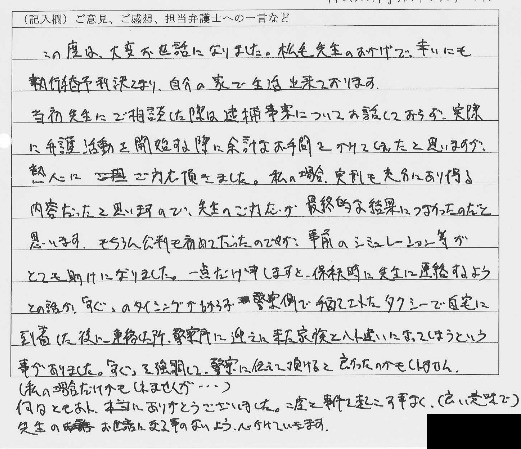 (記入欄)ご意見、ご感想、担当弁護士への一言など
この度は、大変お世話になりました。松毛先生のおかげで、幸いにも
執行猶予判決となり、自分の家で生活出来ております。
当初先生にご相談した際は逮捕事案についてお話しておらず、実際
に弁護活動を開始する際に余計なお手間をかけてしまったと思いますが、
熱心に ご対応頂きました。私の場合、実刑も充分にあり得る
内容だったと思いますので、先生のご対応が最終的な結果につながったのだと
思います。もちろん公判も初めてだったのですが、事前のシミュレーション等が
とても助けになりました。一点だけ申しますと、保釈時に先生に連絡するよう
との話が「すぐ」のタイミングがわからず 警察側で手配してくれたタクシーで自宅に
到着した後に事務所、警察所に迎えに来た家族と入れ違いになってしまうという
事がありました。「すぐ」を強調して、警察に伝えて頂けると良かったのかもしれません。
(私の場合だけかもしれませんが・・・)
何はともあれ、本当にありがとうございました。二度と事件を起こす事なく、(良い意味で)
先生の お世話になる事のないよう、心がけていきます。